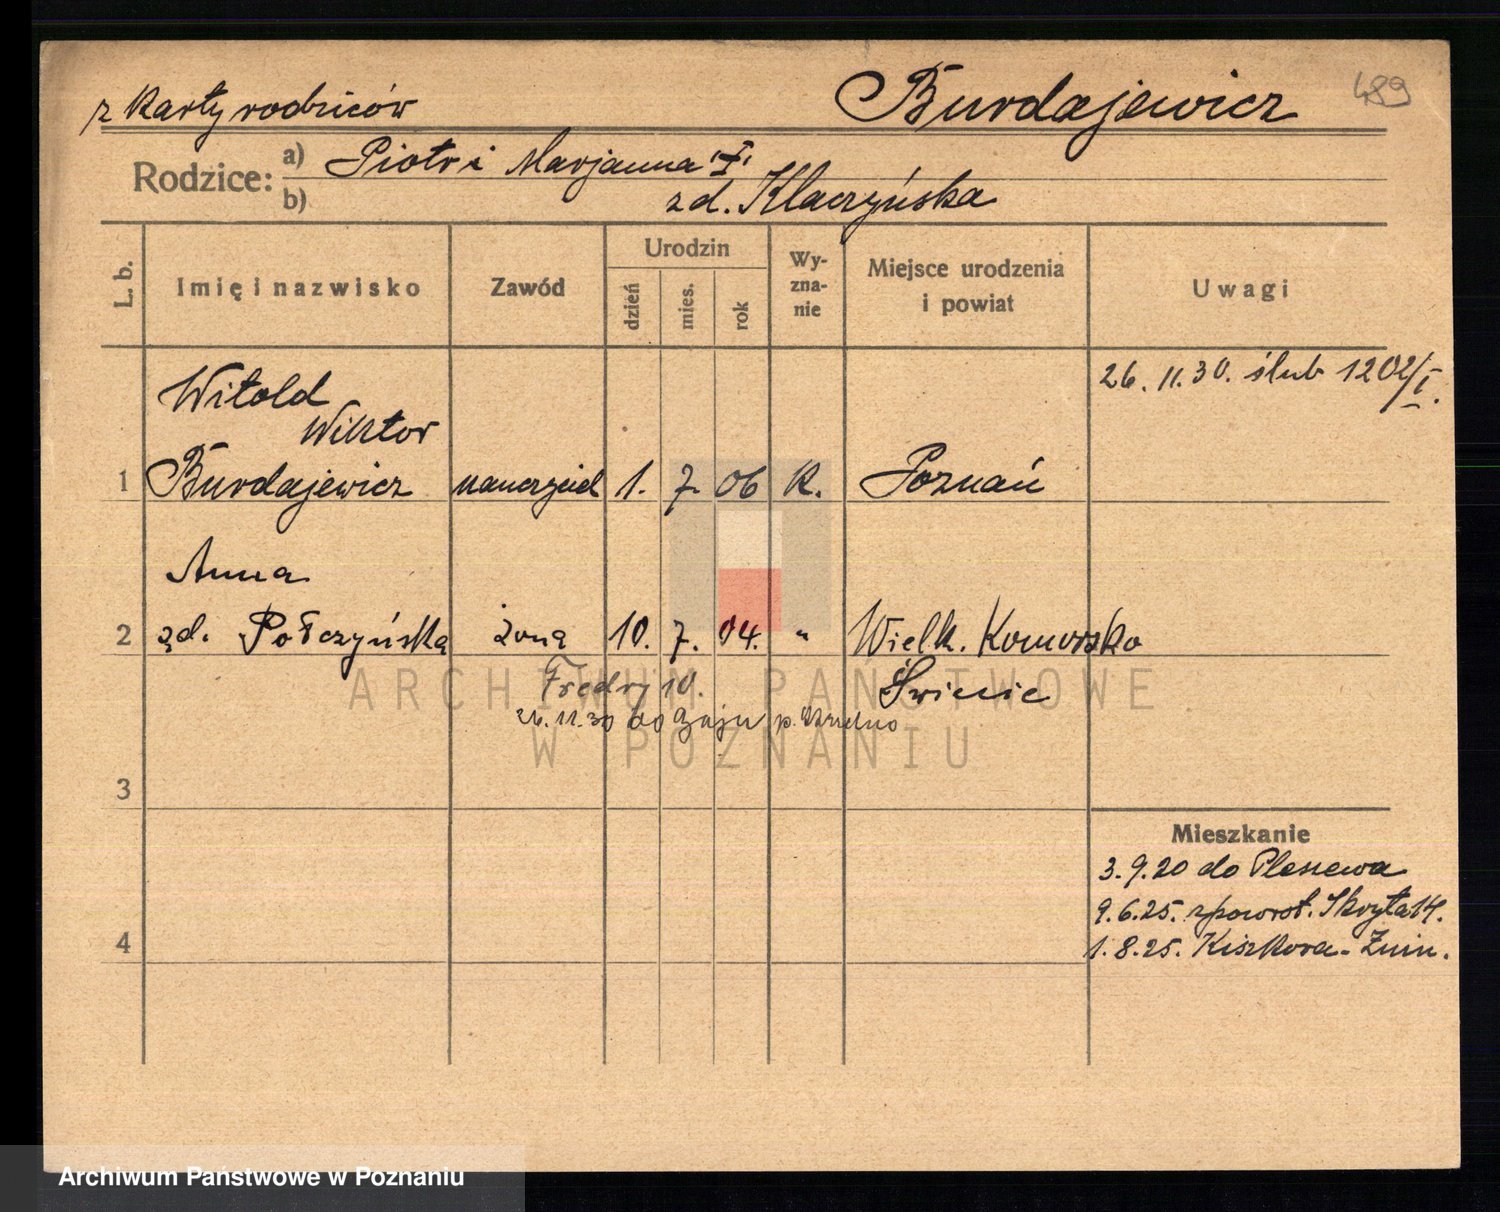 z karty rodziców
Burdajewicz
489
Rodzice:
a) Piotr i Marjanna "I"
b) zd. Klaczyńska
L. b.
Imię i nazwisko
Zawód
Urodzin
dzień
mies.
rok
Wy-
zna-
nie
Miejsce urodzenia
i powiat
Uwagi
26. 11. 30. ślub 1202/I.
Witold
Wiktor
1 Burdajewicz nauczyciel 1. 7. 06 k. Poznań
Anna
2 zd. Połczyńska żona 10. 7. 04. " Wielk. Komorsko
Świecie
Fredry 10.
26.11.30 do Gaju p.
3
Mieszkanie
3.9.20 do Pleszewa
9.6.25. zpowrot. Skryta 14.
4
1.8.25. Kiszkowa - Żnin.
ARCHIWUM PAŃSTWOWE
W POZNANIU
Archiwum Państwowe w Poznaniu